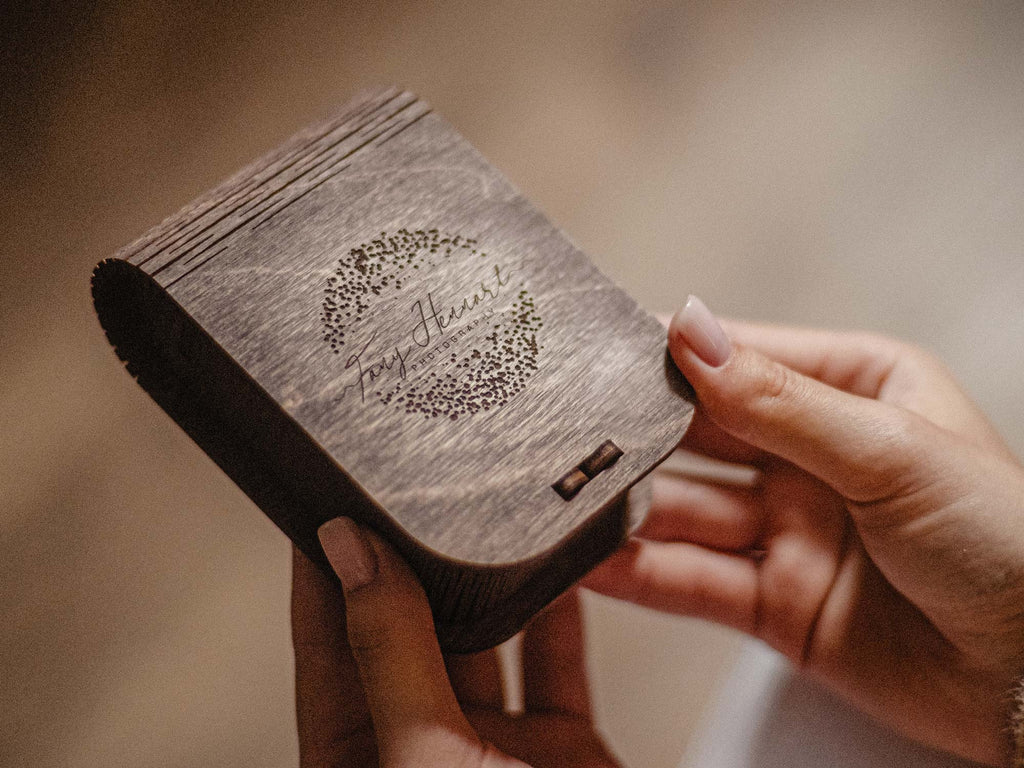 Fany Hennart
PHOTOGRAPHY